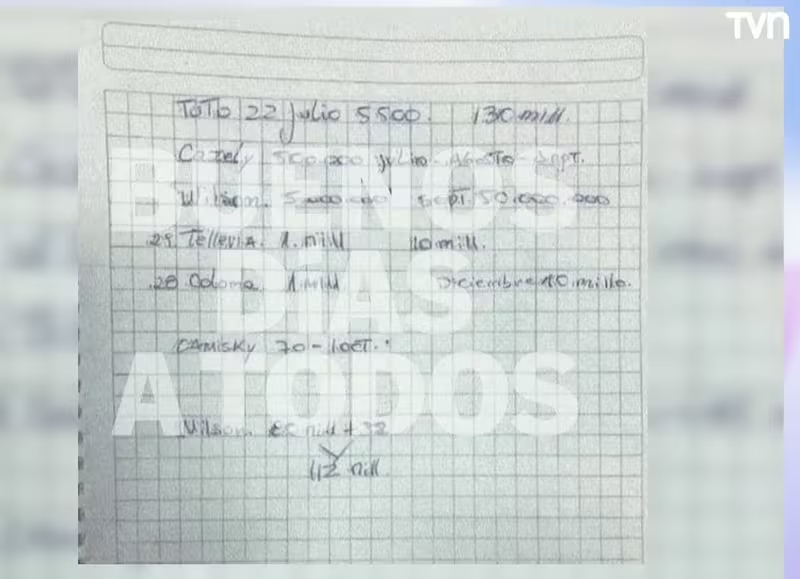 TVN
TOTO 22 julio 5500. 130 mill.
500.000 julio. Agosto - Sept.
Wilson. Sept. 50.000.000
.29 1. mill 10 mill.
.28 Coloma 1 mill Diciembre 10 mill.
CAMISKY 70 -
Wilson. mill + 32
mill
BUENOS
DÍAS
A TODOS